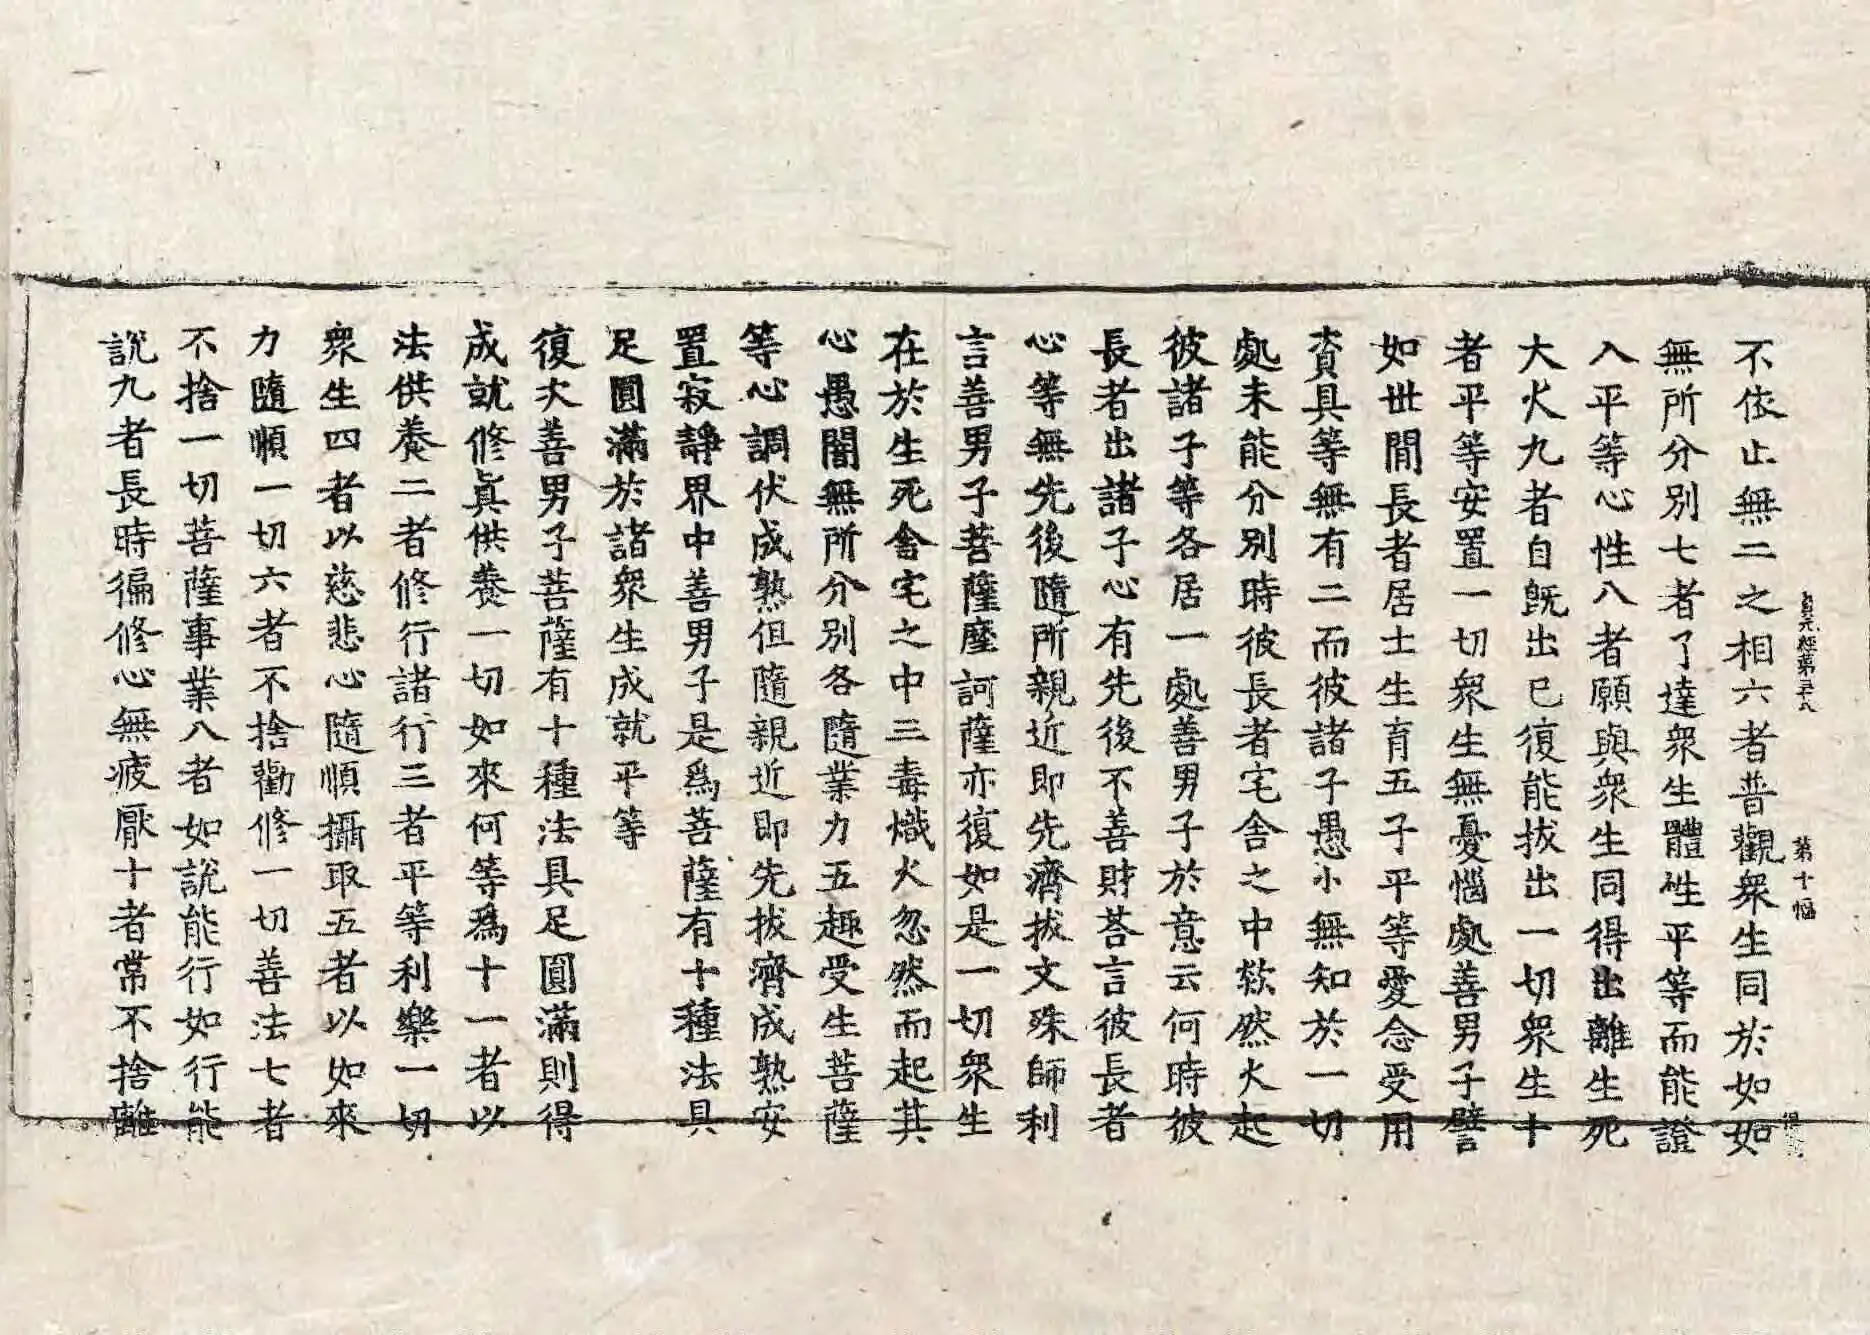 不依止無二之相六者普觀衆生同於如如
無所分別七者了達衆生體性平等而能證
入平等心性八者願與衆生同得出離生死
大火九者自旣出已復能拔出一切衆生十
者平等安置一切衆生無憂惱處善男子譬
如世間長者居士生育五子平等愛念受用
資具等無有二而彼諸子愚小無知於一切
處未能分別時彼長者宅舍之中欻然火起
彼諸子等各居一處善男子於意云何時彼
長者出諸子心有先後不善財荅言彼長者
心等無先後隨所親近即先濟拔文殊師利
言善男子菩薩摩訶薩亦復如是一切衆生
在於生死舍宅之中三毒熾火忽然而起其
心愚闇無所分別各隨業力五趣受生菩薩
等心調伏成熟但隨親近即先拔濟成熟安
置寂靜界中善男子是爲菩薩有十種法具
足圓滿於諸衆生成就平等
復次善男子菩薩有十種法具足圓滿則得
成就修眞供養一切如來何等爲十一者以
法供養二者修行諸行三者平等利樂一切
衆生四者以慈悲心隨順攝取五者以如來
力隨順一切六者不捨勸修一切善法七者
不捨一切菩薩事業八者如說能行如行能
說九者長時徧修心無疲厭十者常不捨離
第十幅